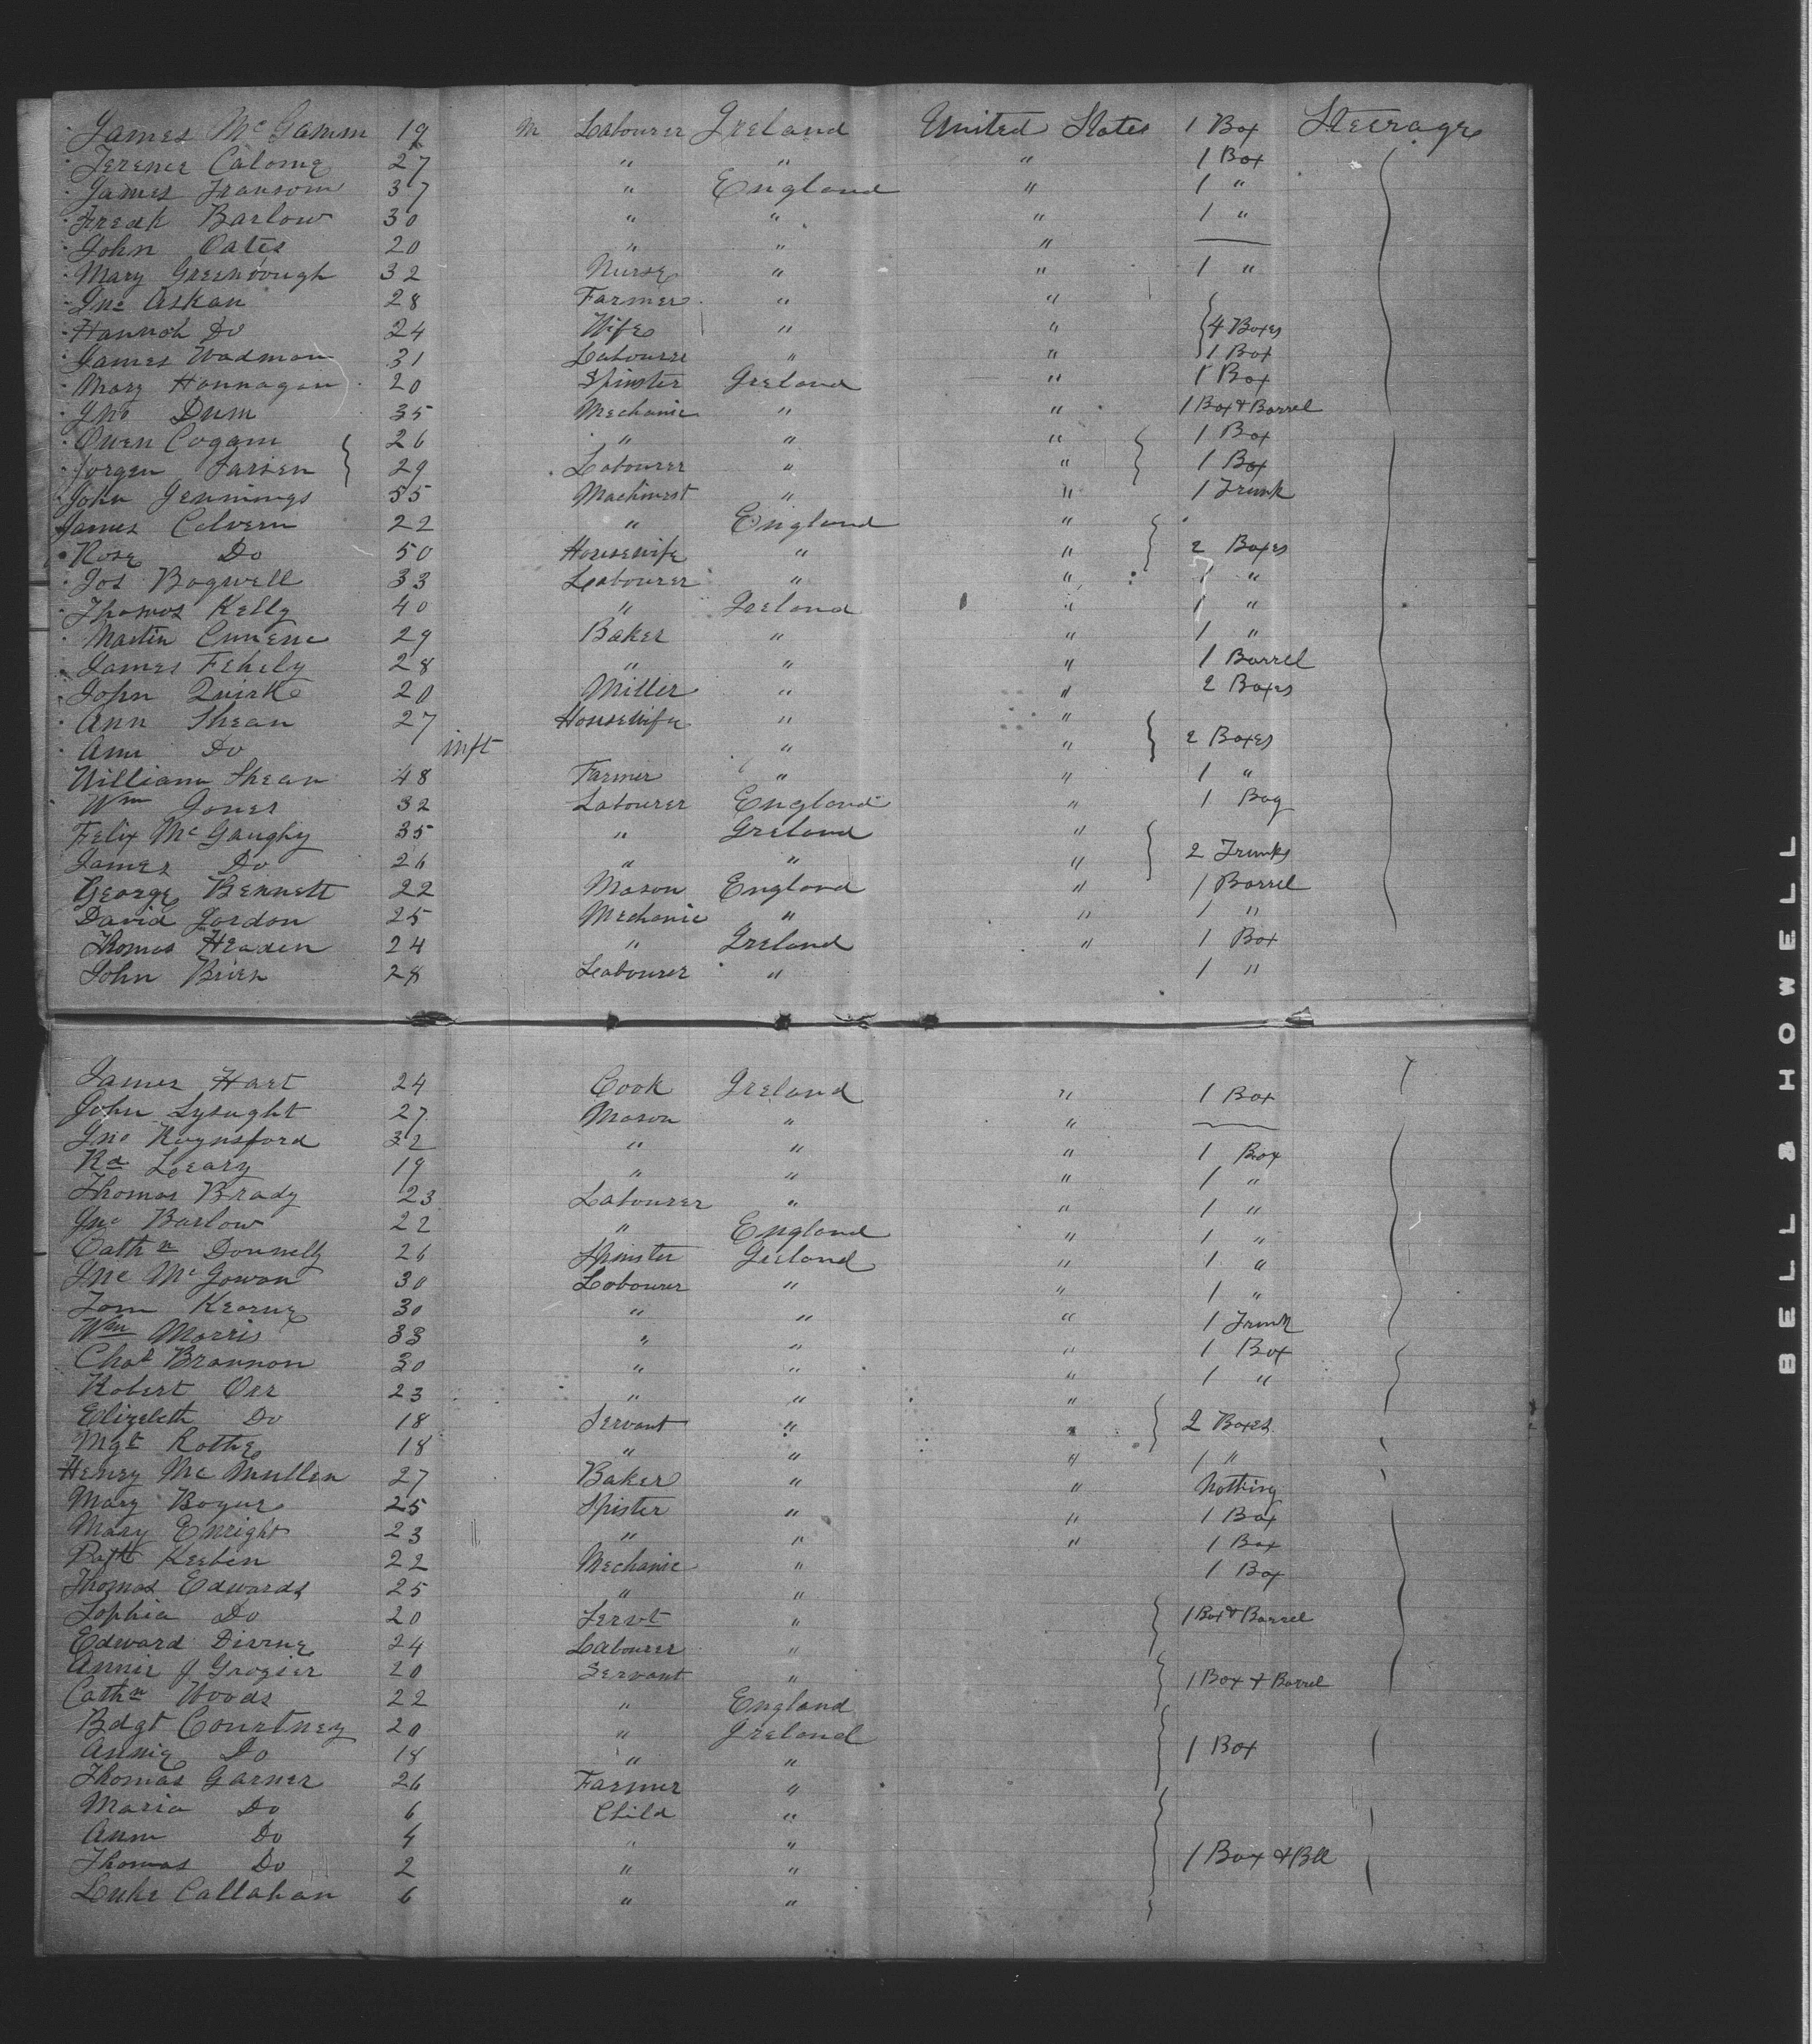 James McGamm 19 m Labourer Ireland United States 1 Box Steerage
Terence Calome 27 " " " 1 Box
James Transom 37 " England " 1 "
Fredk Barlow 30 " " " 1 "
John Oates 20 " " " —
Mary Greenough 32 Nurse " " 1 "
Jno Askan 28 Farmer " "
Hannah Do 24 Wife " " 4 Boxes
James Wadman 31 Labourer " " 1 Box
Mary Hannagan 20 Spinster Ireland " 1 Box
Jno Dum 35 Mechanic " " 1 Box & Barrel
Owen Cogam 26 " " " 1 Box
Jorgen Larsen 29 Labourer " " 1 Box
John Jennings 55 Machinest " " 1 Trunk
James Colvern 22 " England "
Rose Do 50 Housewife " " 2 Boxes
Jos Bagwell 33 Labourer " " 1 "
Thomas Kelly 40 " Ireland " 1 "
Martin 29 Baker " " 1 "
James Fehely 28 " " " 1 Barrel
John Quirke 20 Miller " " 2 Boxes
Ann Shean 27 Housewife " "
Ann Do inft " " 2 Boxes
William Shean 48 Farmer " " 1 "
Wm Jones 32 Labourer England " 1 Bag
Felix McGaughy 35 " Ireland "
James Do 26 " " " 2 Trunks
George Bennett 22 Mason England " 1 Barrel
David Gordon 25 Mechanic " " 1 "
Thomas Headen 24 " Ireland " 1 Box
John Brien 28 Labourer " 1 "
James Hart 24 Cook Ireland " 1 Box
John Lysaght 27 Mason " " —
Jno Raynsford 32 " " " 1 Box
Rd Leary 19 " " " 1 "
Thomas Brady 23 Labourer " " 1 "
Jno Barlow 22 " England " 1 "
Cathn Donnelly 26 Spinster Ireland " 1 "
Jno McGowan 30 Labourer " " 1 "
Tom Kearne 30 " " " 1 Trunk
Wm Morris 33 " " " 1 Box
Chas Brannon 30 " " " 1 "
Robert Orr 23 " " "
Elizebeth Do 18 Servant " " 2 Boxes
Mgt Rothe 18 " " " 1 "
Henry McMullen 27 Baker " " Nothing
Mary Bogue 25 Spister " " 1 Box
Mary Enright 23 " " " 1 Box
Patk Keeben 22 Mechanic " 1 Box
Thomas Edwards 25 " "
Sophia Do 20 Servt " 1 Box & Barrel
Edward Divine 24 Labourer "
Annie J Grogier 20 Servant " 1 Box & Barrel
Cathn Woods 22 " England
Bdgt Courtney 20 " Ireland
Annie Do 18 " " 1 Box
Thomas Garner 26 Farmer "
Maria Do 6 Child "
Ann Do 4 " "
Thomas Do 2 " " 1 Box & Bll
Luke Callahan 6 " "
BELL & HOWELL